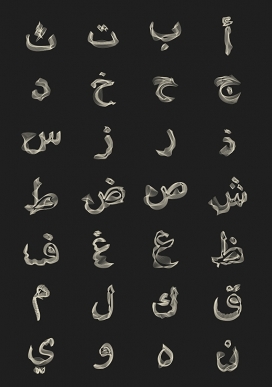 أ ب ت ث
ج ح خ د
ذ ر ز س
ش ص ض ط
ظ ع غ ف
ق ك ل م
ن ه و ي